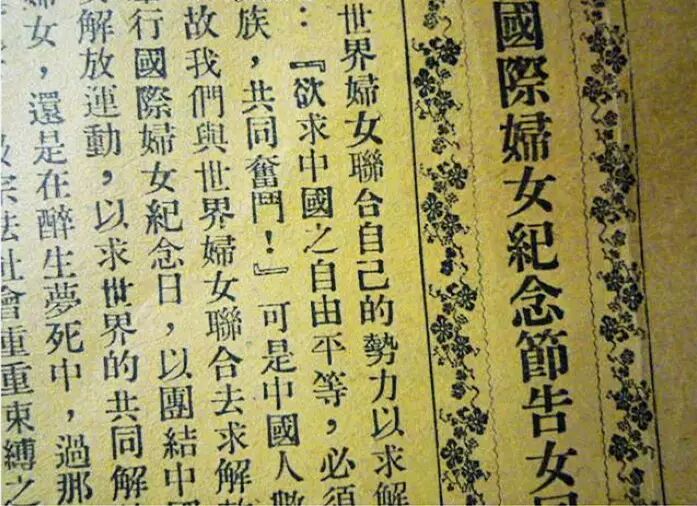 國際婦女紀念節告女
世界婦女聯合自己的勢力以求解
：『欲求中國之自由平等，必須
族，共同奮鬥！』可是中國人數
故我們與世界婦女聯合去求解放
行國際婦女紀念日，以團結中國
解放運動，以求世界的共同解
婦女，還是在醉生夢死中，過那
宗法社會重重束縛之